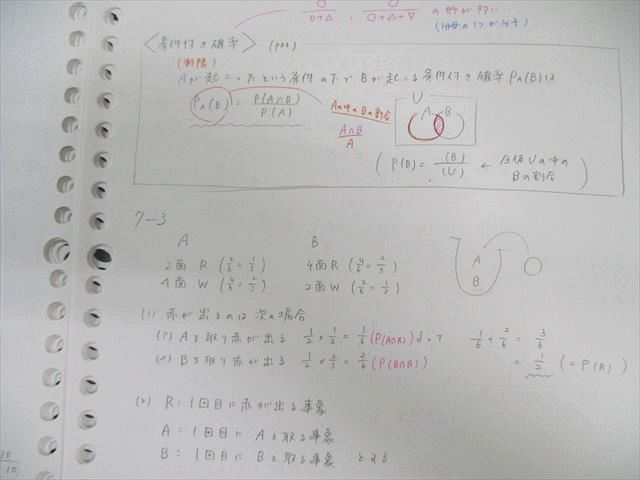 ○/○+△ , ○/○+△+▽ の形が多い
(分母の1つが分子)
〈条件付き確率〉
(制限)
Aが起こったという条件の下でBが起こる条件付き確率 PA(B)は
PA(B) = P(A∩B)/P(A)
Aの中のBの割合
A∩B/A
U
A B
( P(B) = (B)/(U) ← 全体Uの中のBの割合 )
7-3
A B
2面 R (2/6=1/3) 4面 R (4/6=2/3)
4面 W (4/6=2/3) 2面 W (2/6=1/3)
A
B
(1) 赤が出るのは次の場合
(ア) Aを取り赤が出る 1/2×1/3=1/6 (P(A∩R)) よって 1/6+2/6=3/6
(イ) Bを取り赤が出る 1/2×2/3=2/6 (P(B∩R)) =1/2 (=P(R))
(2) R:1回目に赤が出る事象
A:1回目にAを取る事象
B:1回目にBを取る事象 とする
30
10